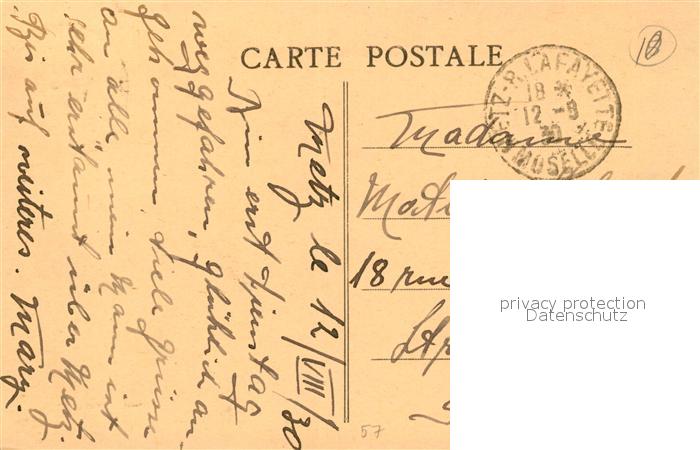 CARTE POSTALE
Metz le 12/VIII/30
Bin erst Dienstag
weggefahren, glücklich an-
gekommen. Viele Grüsse
an alle, mein Mann ist
sehr erstaunt über Metz.
Bis auf weiteres. Mary.
METZ-R. LAFAYETTE
18
12 -8
30
MOSELLE
Madame
18 rue
57
18
privacy protection
Datenschutz